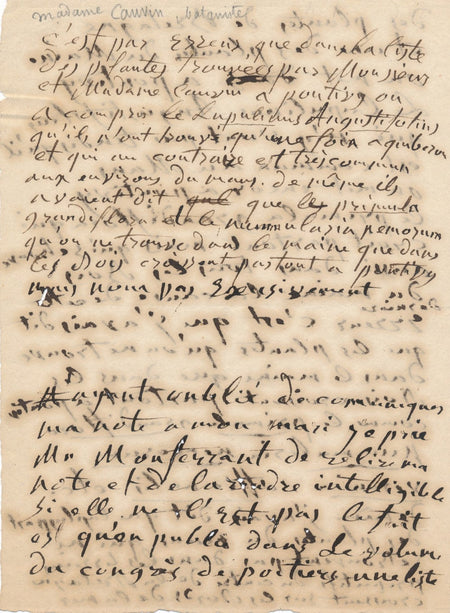 madame Cauvin, botaniste
c'est par erreur que dans la liste
des plantes trouvées par Monsieur
et Madame Cauvin a pontivy on
a compris le Lupulinus Angustifolius
qu'ils n'ont trouvé qu'une fois a quiberon
et qui au contraire est tres commun
aux environs du mans. de même ils
avaient dit que le primula
grandiflora et le nummularia nemorum
qu'on ne trouve dans le maine que dans
les bois croissent partout a pontivy
mais non pas
Ayant oublié de communiquer
ma note a mon mari je prie
Mr Monferrant de relire ma
note et de la rendre intelligible
si elle ne l'est pas le fait
est qu'on publa dans le volume
du congrès de poitiers une liste